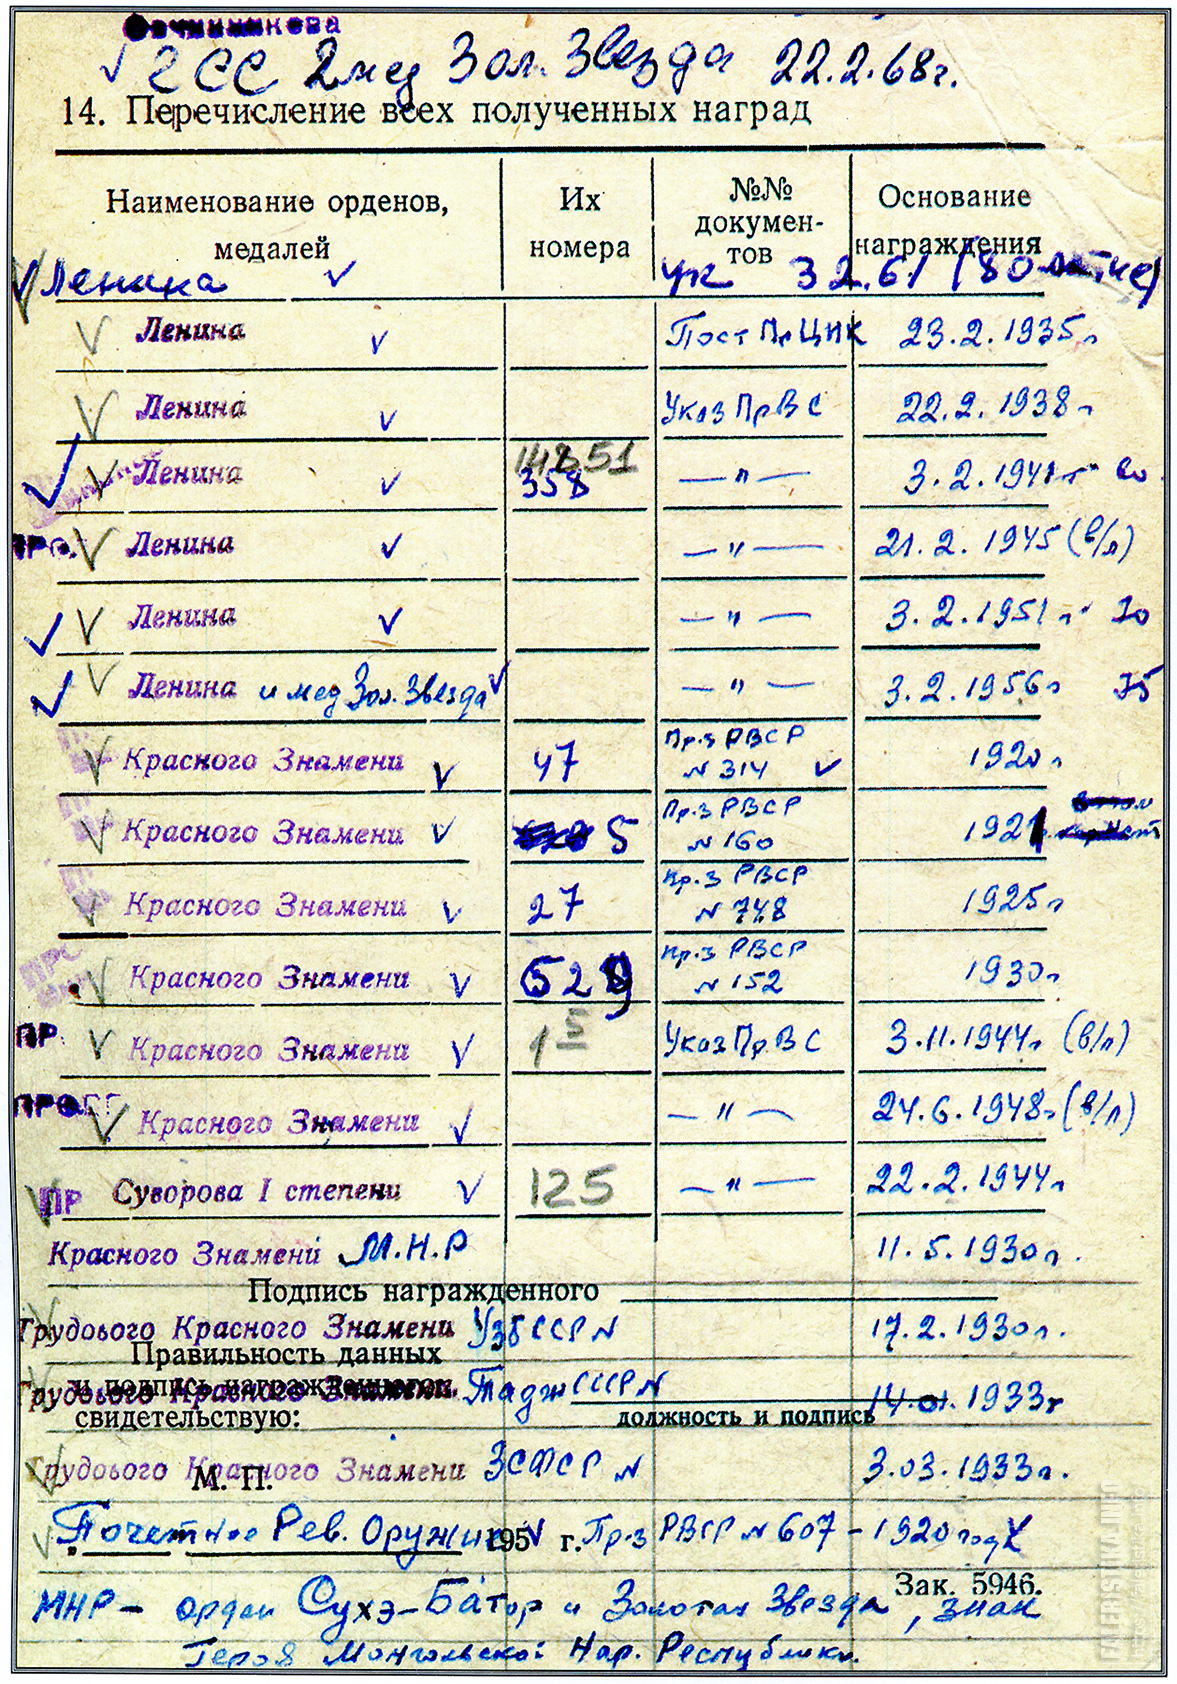 Овчинникова
ГСС 2 мед Зол. Звезда 22.2.68г.
14. Перечисление всех полученных наград
Наименование орденов, медалей Их номера №№ докумен-тов Основание награждения
Ленина Ук 3.2.61 (80 летие)
Ленина Пост Пр ЦИК 23.2.1935г
Ленина Указ ПрВС 22.2.1938г
Ленина 14851 358 — " — 3.2.1941г 60
Ленина — " — 21.2.1945 (в/л)
Ленина — " — 3.2.1951г 70
Ленина и мед Зол. Звезда — " — 3.2.1956г 75
Красного Знамени 47 Пр.з РВСР N 314 1920г
Красного Знамени 5 Пр.з РВСР N 160 1921
Красного Знамени 27 Пр.з РВСР N 748 1925г
Красного Знамени Пр.з РВСР N 152 1930г
ПР. Красного Знамени Указ ПрВС 3.11.1944г (в/л)
Красного Знамени — " — 24.6.1948г (в/л)
ПР Суворова I степени 125 — " — 22.2.1944г
Красного Знамени М.Н.Р 11.5.1930г.
Подпись награжденного
Трудового Красного Знамени УзбССР N 17.2.1930г.
Правильность данных
и подпись награжденного
Трудового Красного Знамени. Тадж СССР N 14.01.1933г
свидетельствую: должность и подпись
Трудового Красного Знамени ЗСФСР N 3.03.1933г.
М. П.
Почетное Рев. Оружие Пр.з РВСР N 607 - 1920 год
195 г.
Зак. 5946.
МНР - орден Сухэ-Батор и Золотая Звезда, знак
Героя Монгольской Нар. Республики.
FALERISTIKA.INFO